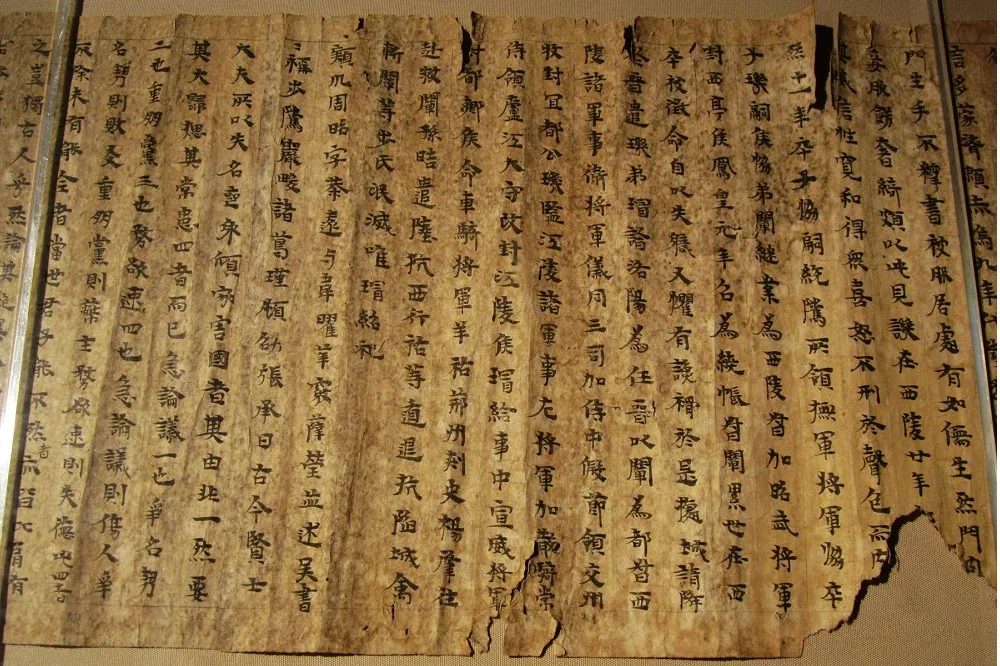 蒙濟賴赤烏九年
門生手不釋書被服居處有如儒生然門內
妾服餝奢綺頗以此見譏在西陵廿年
其威信性寬和得衆喜怒不形於聲色而內
然十一年卒子協嗣統騭所領撫軍將軍協卒
子璣嗣侯協弟闡繼業為西陵督加昭武將軍
封西亭侯鳳皇元年召為繞帳督闡累世在西
卒被徵命自以失職又懼有讒禍於是據城請降
遣璣弟璿詣洛陽為任晉以闡為都督西
陵諸軍事衛將軍儀同三司加侍中假節領交州
牧封宜都公璣監江陵諸軍事左將軍加散騎常
侍領廬江太守改封江陵侯璿給事中宣威將軍
封都鄉侯命車騎將軍羊祜荊州刺史楊肇往
赴救闡孫晧遣陸抗西行祜等遁退抗陷城禽
斬闡等步氏泯滅唯璿紹祀
潁川周昭字恭遠與韋曜華覈薛瑩並述吳書
稱步騭嚴畯諸葛瑾顧劭張承曰古今賢士
大夫所以失名喪身傾家害國者其由非一然要
其大歸總其常患四者而已急論議一也爭名勢
二也重朋黨三也務欲速四也急論議則傷人爭
名勢則敗友重朋黨則蔽主務欲速則失德此四者
不除未有能全者當世君子能不然者亦皆比肩有
之豈獨古人乎然論其絕異